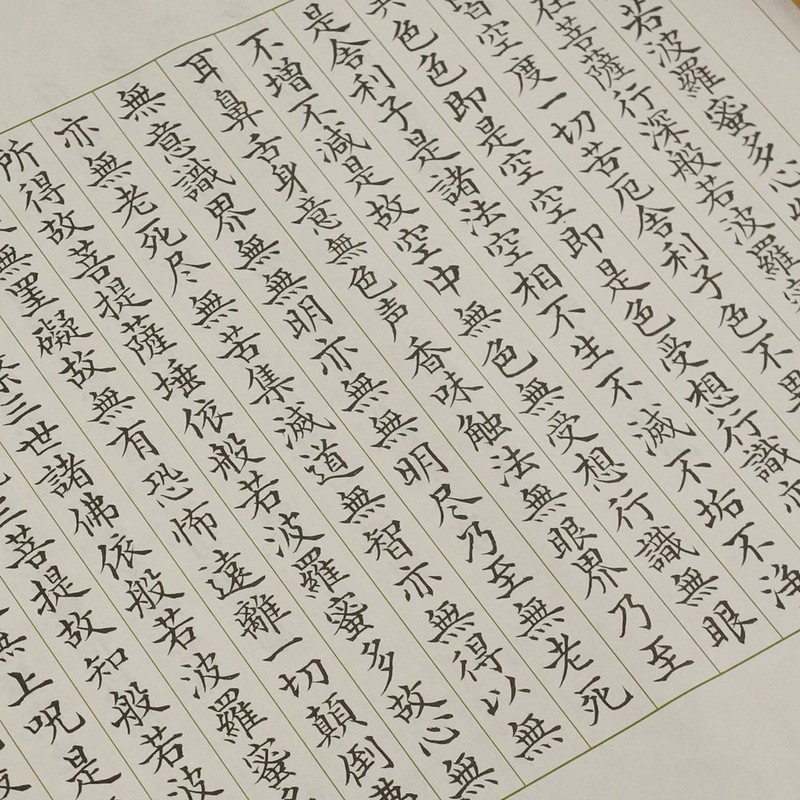 若波羅蜜多心
在菩薩行深般若波羅蜜
皆空度一切苦厄舎利子色不異
色色即是空空即是色受想行識亦
是舎利子是諸法空相不生不滅不垢不浄
不増不減是故空中無色無受想行識無眼
耳鼻舌身意無色声香味触法無眼界乃至
無意識界無無明亦無無明尽乃至無老死
亦無老死尽無苦集滅道無智亦無得以無
所得故菩提薩埵依般若波羅蜜多故心無
無罣礙故無有恐怖遠離一切顛倒夢
三世諸佛依般若波羅蜜多
三菩提故知般若波
無上呪是